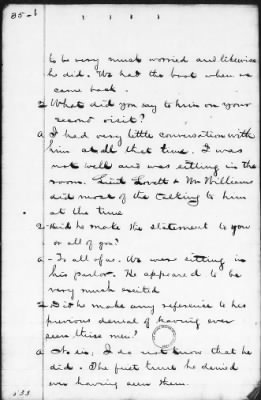 85-6
to be very much worried and likewise
he did. We had the boot when we
came back.
Q What did you say to him on your
second visit?
a I had very little conversation with
him at all that time. I was
not well and was sitting in the
room. Lieut Lovett & Mr Williams
did most of the talking to him
at the time
Q Did he make this statement to you
or all of you?
a - To all of us. We were sitting in
his parlor. He appeared to be
very much excited
Q Did he make any reference to his
previous denial of having ever
seen these men?
a No sir, I do not know that he
did. The first time he denied
ever having seen them.